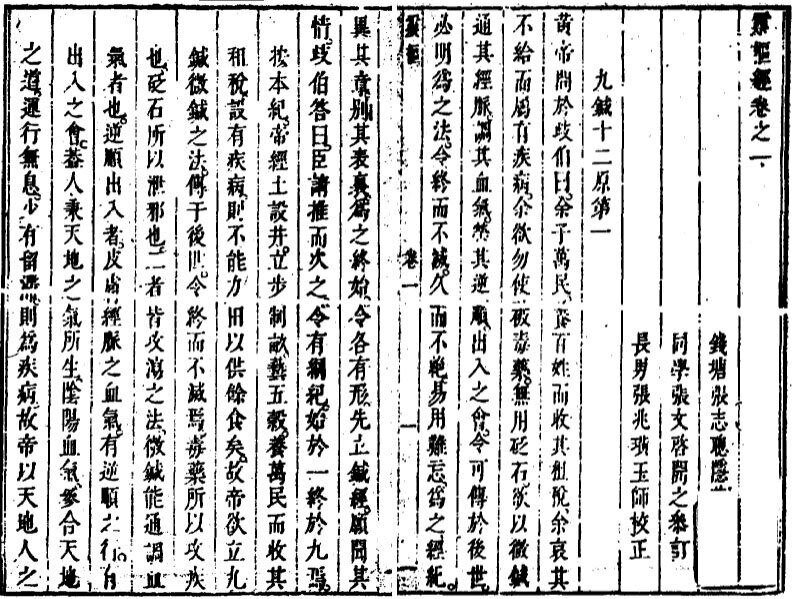 靈樞經卷之一
錢塘張志聰隱菴
同學張文啓開之參訂
長男張兆璜玉師校正
九鍼十二原第一
黃帝問於歧伯曰余子萬民養百姓而收其租稅余哀其
不給而屬有疾病余欲勿使被毒藥無用砭石欲以微鍼
通其經脈調其血氣榮其逆順出入之會令可傳於後世
必明爲之法令終而不滅久而不絕易用難忘爲之經紀
靈樞 卷一 一
異其章別其表裏爲之終始令各有形先立鍼經願聞其
情歧伯答曰臣請推而次之令有綱紀始於一終於九焉
按本紀帝經土設井立步制畝藝五穀養萬民而收其
租稅設有疾病則不能力田以供餘食矣故帝欲立九
鍼微鍼之法傳于後世令終而不滅焉毒藥所以攻疾
也砭石所以泄邪也二者皆攻瀉之法微鍼能通調血
氣者也逆順出入者皮膚經脈之血氣有逆順之行有
出入之會蓋人秉天地之氣所生陰陽血氣參合天地
之道運行無息少有留滯則爲疾病故帝以天地人之